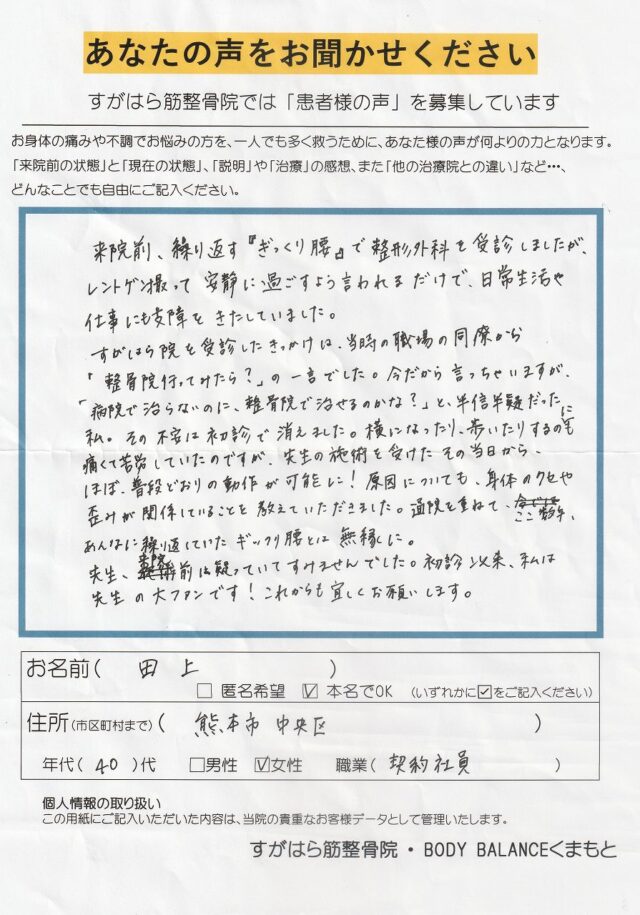 あなたの声をお聞かせください
すがはら筋整骨院では「患者様の声」を募集しています
お身体の痛みや不調でお悩みの方を、一人でも多く救うために、あなた様の声が何よりの力となります。
「来院前の状態」と「現在の状態」、「説明」や「治療」の感想、また「他の治療院との違い」など…、
どんなことでも自由にご記入ください。
来院前、繰り返す『ぎっくり腰』で整形外科を受診しましたが、
レントゲン撮って安静に過ごすよう言われるだけで、日常生活や
仕事にも支障をきたしていました。
すがはら院を受診したきっかけは、当時の職場の同僚から
「整骨院行ってみたら?」の一言でした。今だから言っちゃいますが、
「病院で治らないのに、整骨院で治せるのかな?」と、半信半疑だった
私。その不安は初診で消えました。横になったり、歩いたりするのにも
痛くて苦労していたのですが、先生の施術を受けたその当日から、
ほぼ、普段どおりの動作が可能に!原因についても、身体のクセや
歪みが関係していることを教えていただきました。通院を重ねて、ここ数年、
あんなに繰り返していたギックリ腰とは無縁に。
先生、来院前は疑っていてすみませんでした。初診以来、私は
先生の大ファンです!これからも宜しくお願いします。
お名前( 田上 )
□ 匿名希望 ☑ 本名でOK (いずれかに☑をご記入ください)
住所(市区町村まで)( 熊本市 中央区 )
年代( 40 )代 □男性 ☑女性 職業( 契約社員 )
個人情報の取り扱い
この用紙にご記入いただいた内容は、当院の貴重なお客様データとして管理いたします。
すがはら筋整骨院・BODY BALANCEくまもと